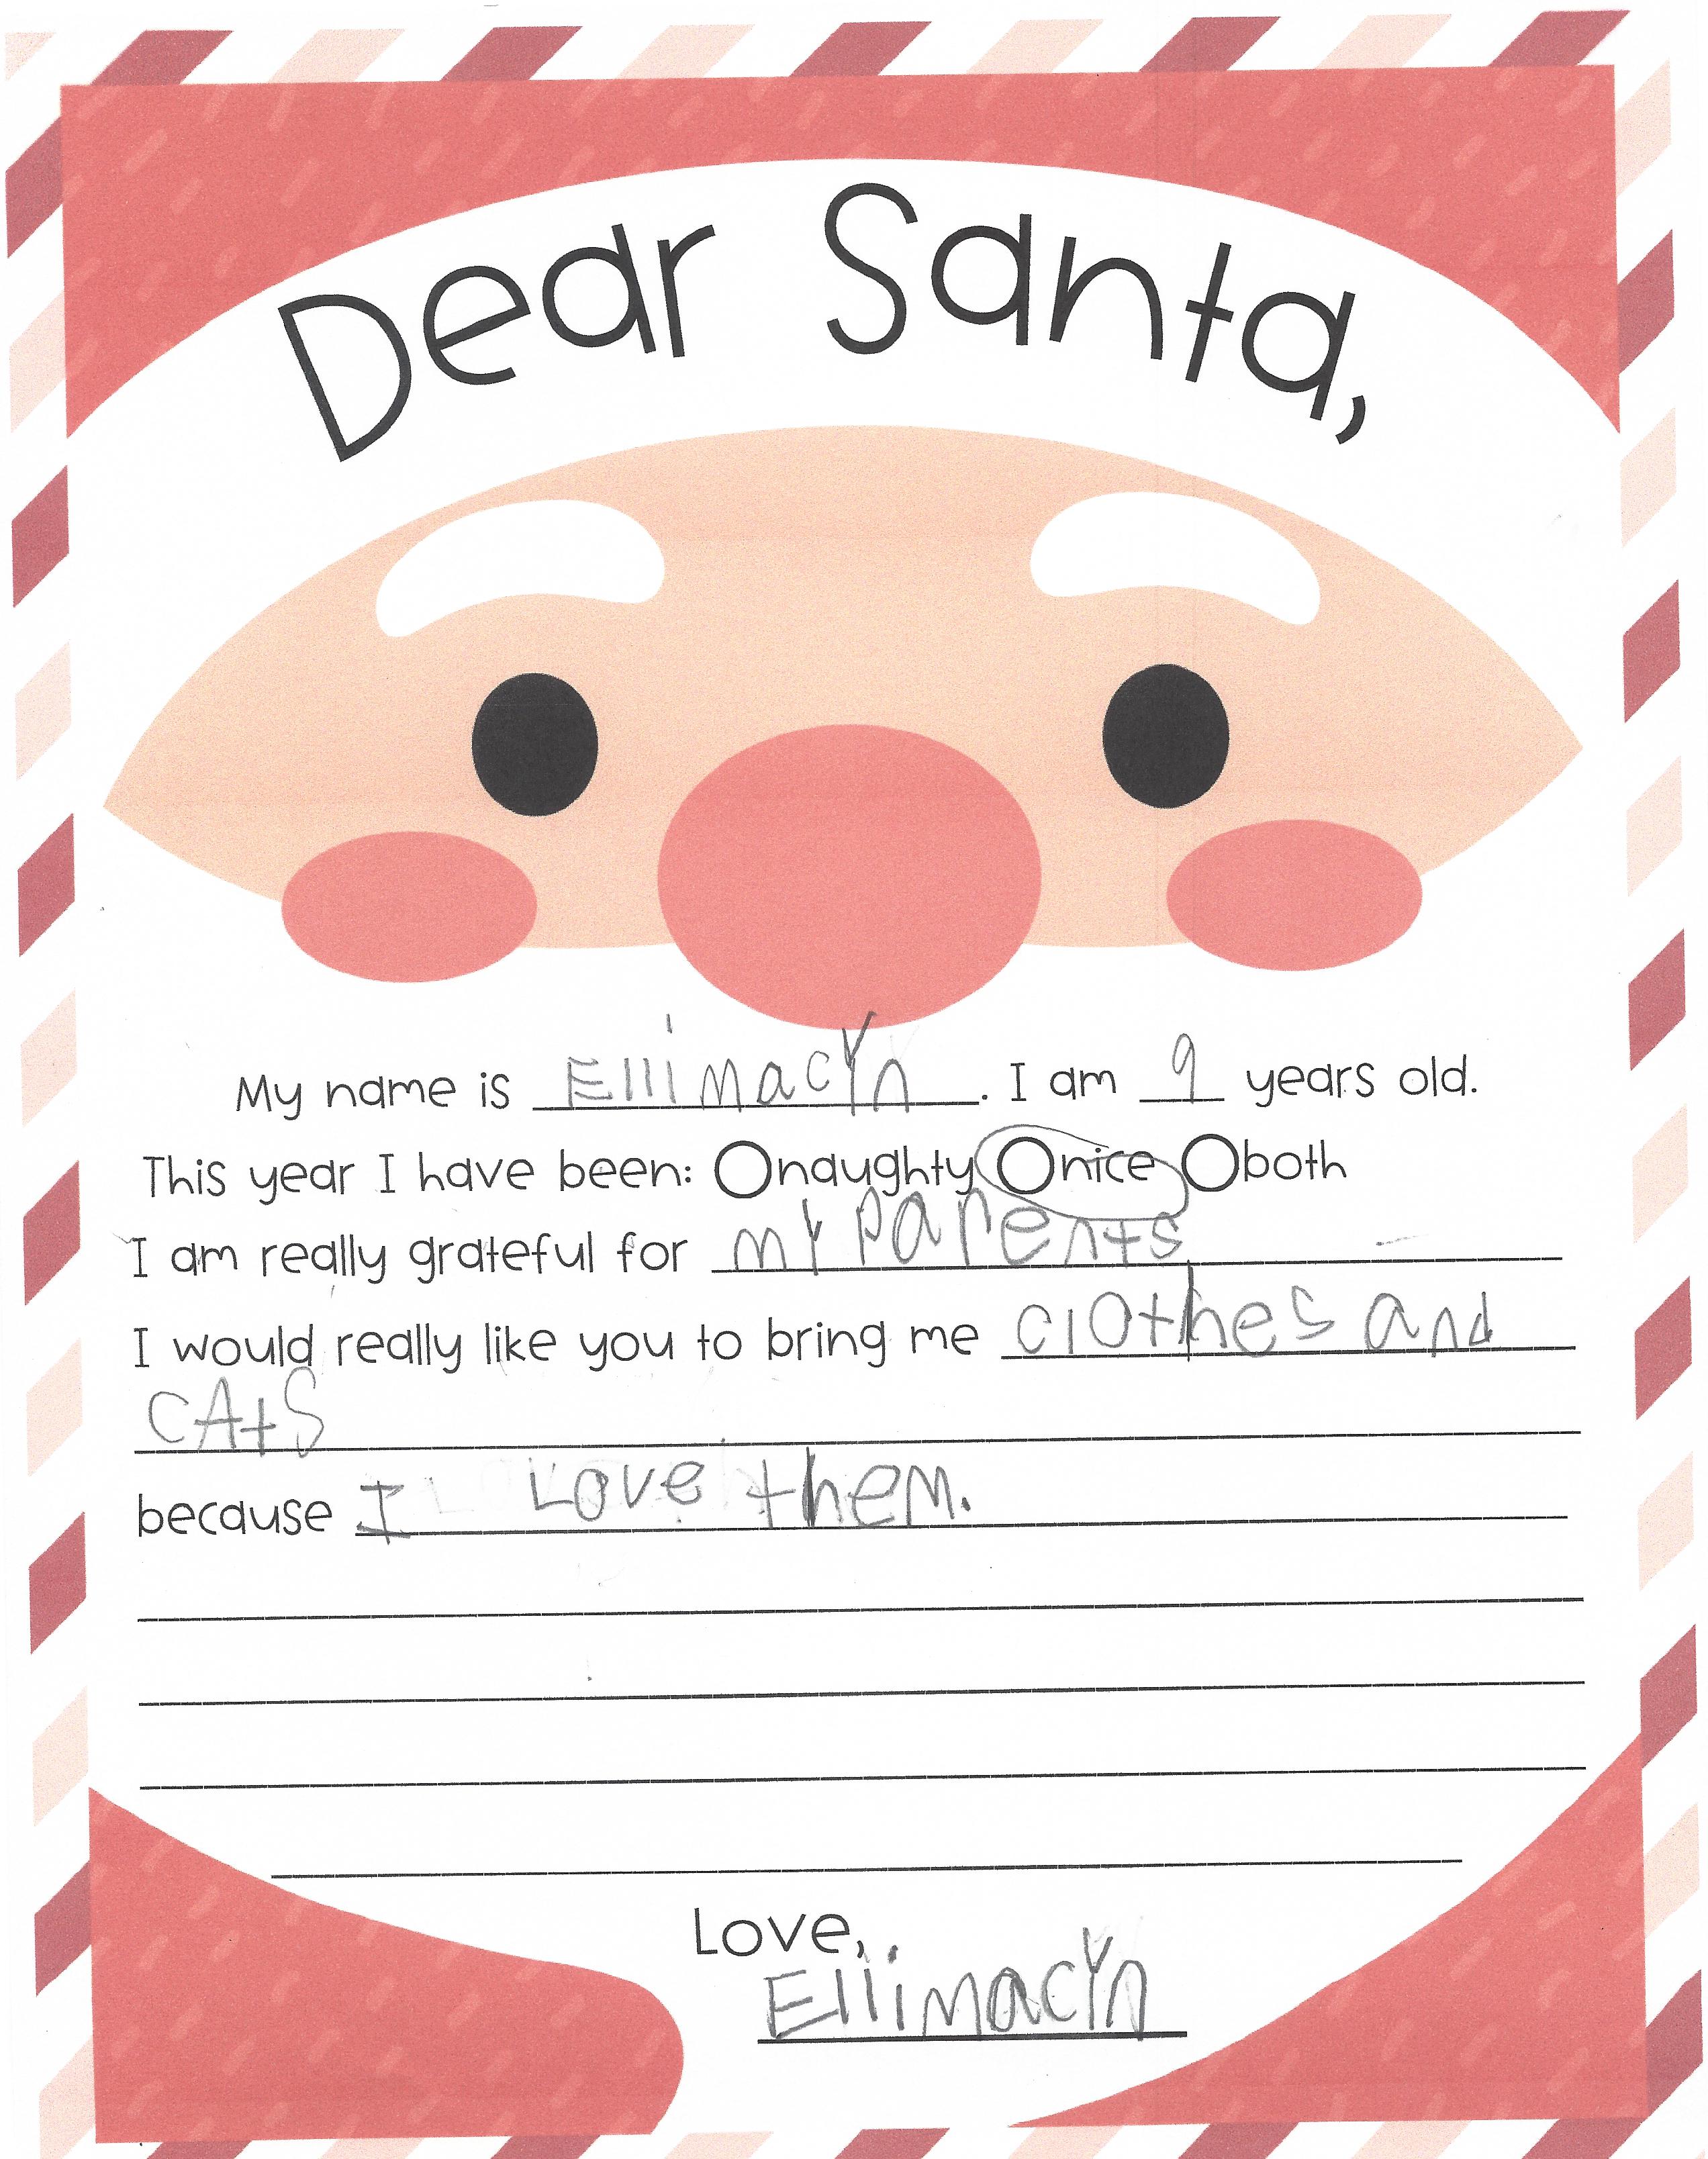 Dear Santa,
My name is Ellimacyn. I am 9 years old.
This year I have been: O naughty O nice O both
I am really grateful for my parents
I would really like you to bring me clothes and
CAts
because I Love them.
Love,
Ellimacyn